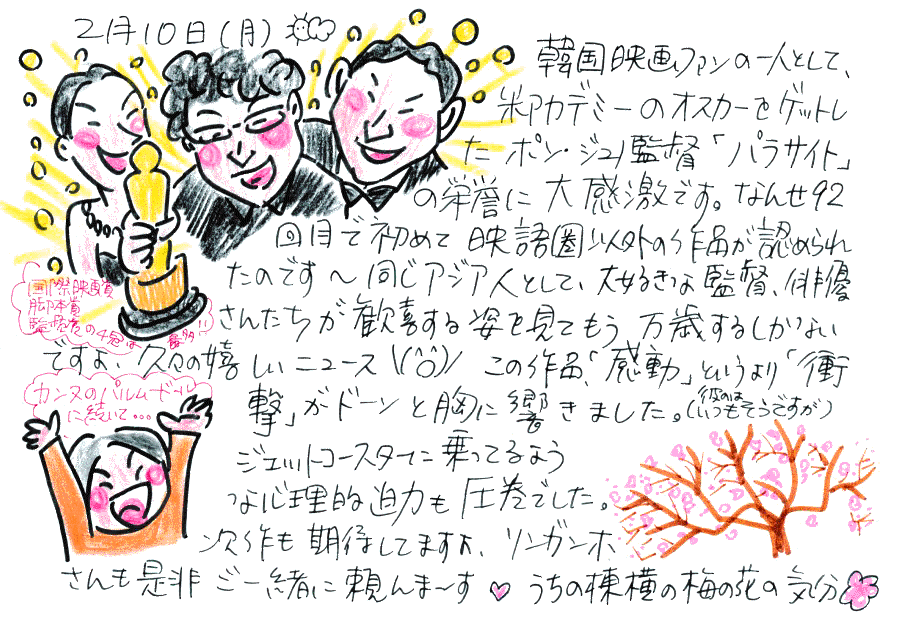 2月10日(月)
韓国映画ファンの一人として、
米アカデミーのオスカーをゲットし
たポン・ジュノ監督「パラサイト」
の栄誉に大感激です。なんせ92
回目で初めて映語圏以外の作品が認められ
たのです〜同じアジア人として、大好きな監督、俳優
さんたちが歓喜する姿を見てもう万歳するしかない
ですよ、久々の嬉しいニュース\(^o^)/ この作品、「感動」というより「衝
撃」がドーンと胸に響きました。(彼のはいつもそうですが)
ジェットコースターに乗ってるよう
な心理的迫力も圧巻でした。
次作も期待してますよ、ソンガンホ
さんも是非ご一緒に頼んま〜す♡ うちの棟横の梅の花の気分
国際映画賞
脚本賞
監督賞の4冠は
最多!!
カンヌのパルムドール
に続いて...